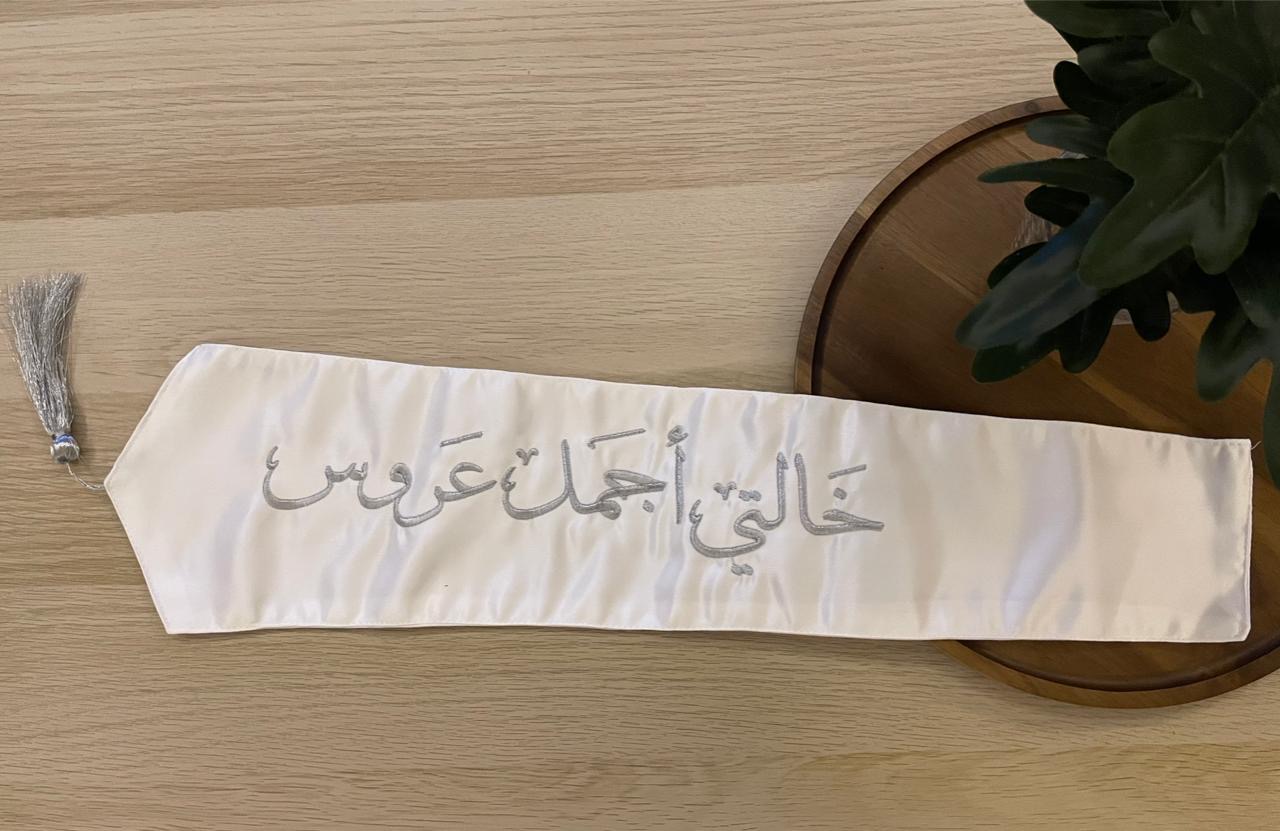 خَالتي أجمَل عَروس